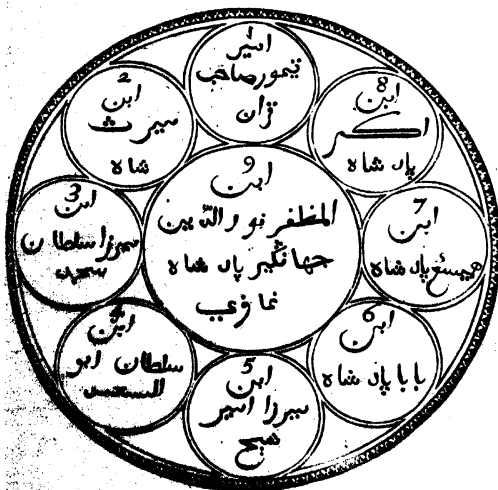 امير
تيمور صاحب
قران
2
ابن
ميرث
شاه
3
ابن
ميرزا سلطان
محمد
4
ابن
سلطان ابو
السعيد
5
ابن
ميرزا امير
شيخ
6
ابن
بابا پاد شاه
7
ابن
پاد شاه
8
ابن
اكبر
پاد شاه
9
ابن
المظفر نور الدين
جهانگير پاد شاه